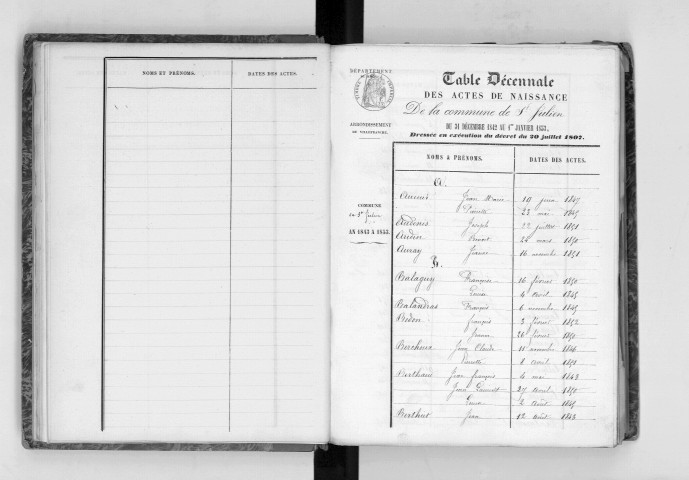 NOMS ET PRÉNOMS. DATES DES ACTES.
DÉPARTEMENT
ARRONDISSEMENT
DE VILLEFRANCHE.
COMMUNE
de St Julien
AN 1843 A 1853.
Table Décennale
DES ACTES DE NAISSANCE
De la commune de St Julien
DU 31 DÉCEMBRE 1842 AU 1er JANVIER 1853,
Dressée en exécution du décret du 20 juillet 1807.
NOMS & PRÉNOMS. DATES DES ACTES.
A.
Jean Marie 19 juin 1845
23 mai 1845
Audenis Joseph 22 juillet 1851
Audin Benoit 24 mars 1850
Auray 16 novembre 1851
B.
Balaguy François 16 février 1850
Louise 4 avril 1845
Balandras François 6 novembre 1845
Bedon François 3 février 1852
26 février 1850
Jean Claude 11 novembre 1846
8 avril 1851
Berthaud Jean François 6 mai 1843
27 avril 1850
2 août 1845
Berthut Jean 12 août 1843